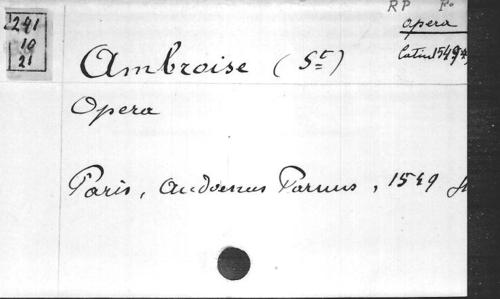 RP Fo
1241
19
21
opera
latin 1549
Ambroise (St)
Opera
Paris, Audoenus Parvus, 1549 f